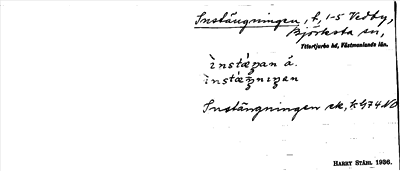 Instängningen, t, 1-5 Vedby,
Björksta sn,
Yttertjurbo hd, Västmanlands län.
ìnstæ̀ŋan å.
ìnstæ̀ŋnıŋan
Instängningen sk, t. 474 NO
HARRY STÅHL 1936.